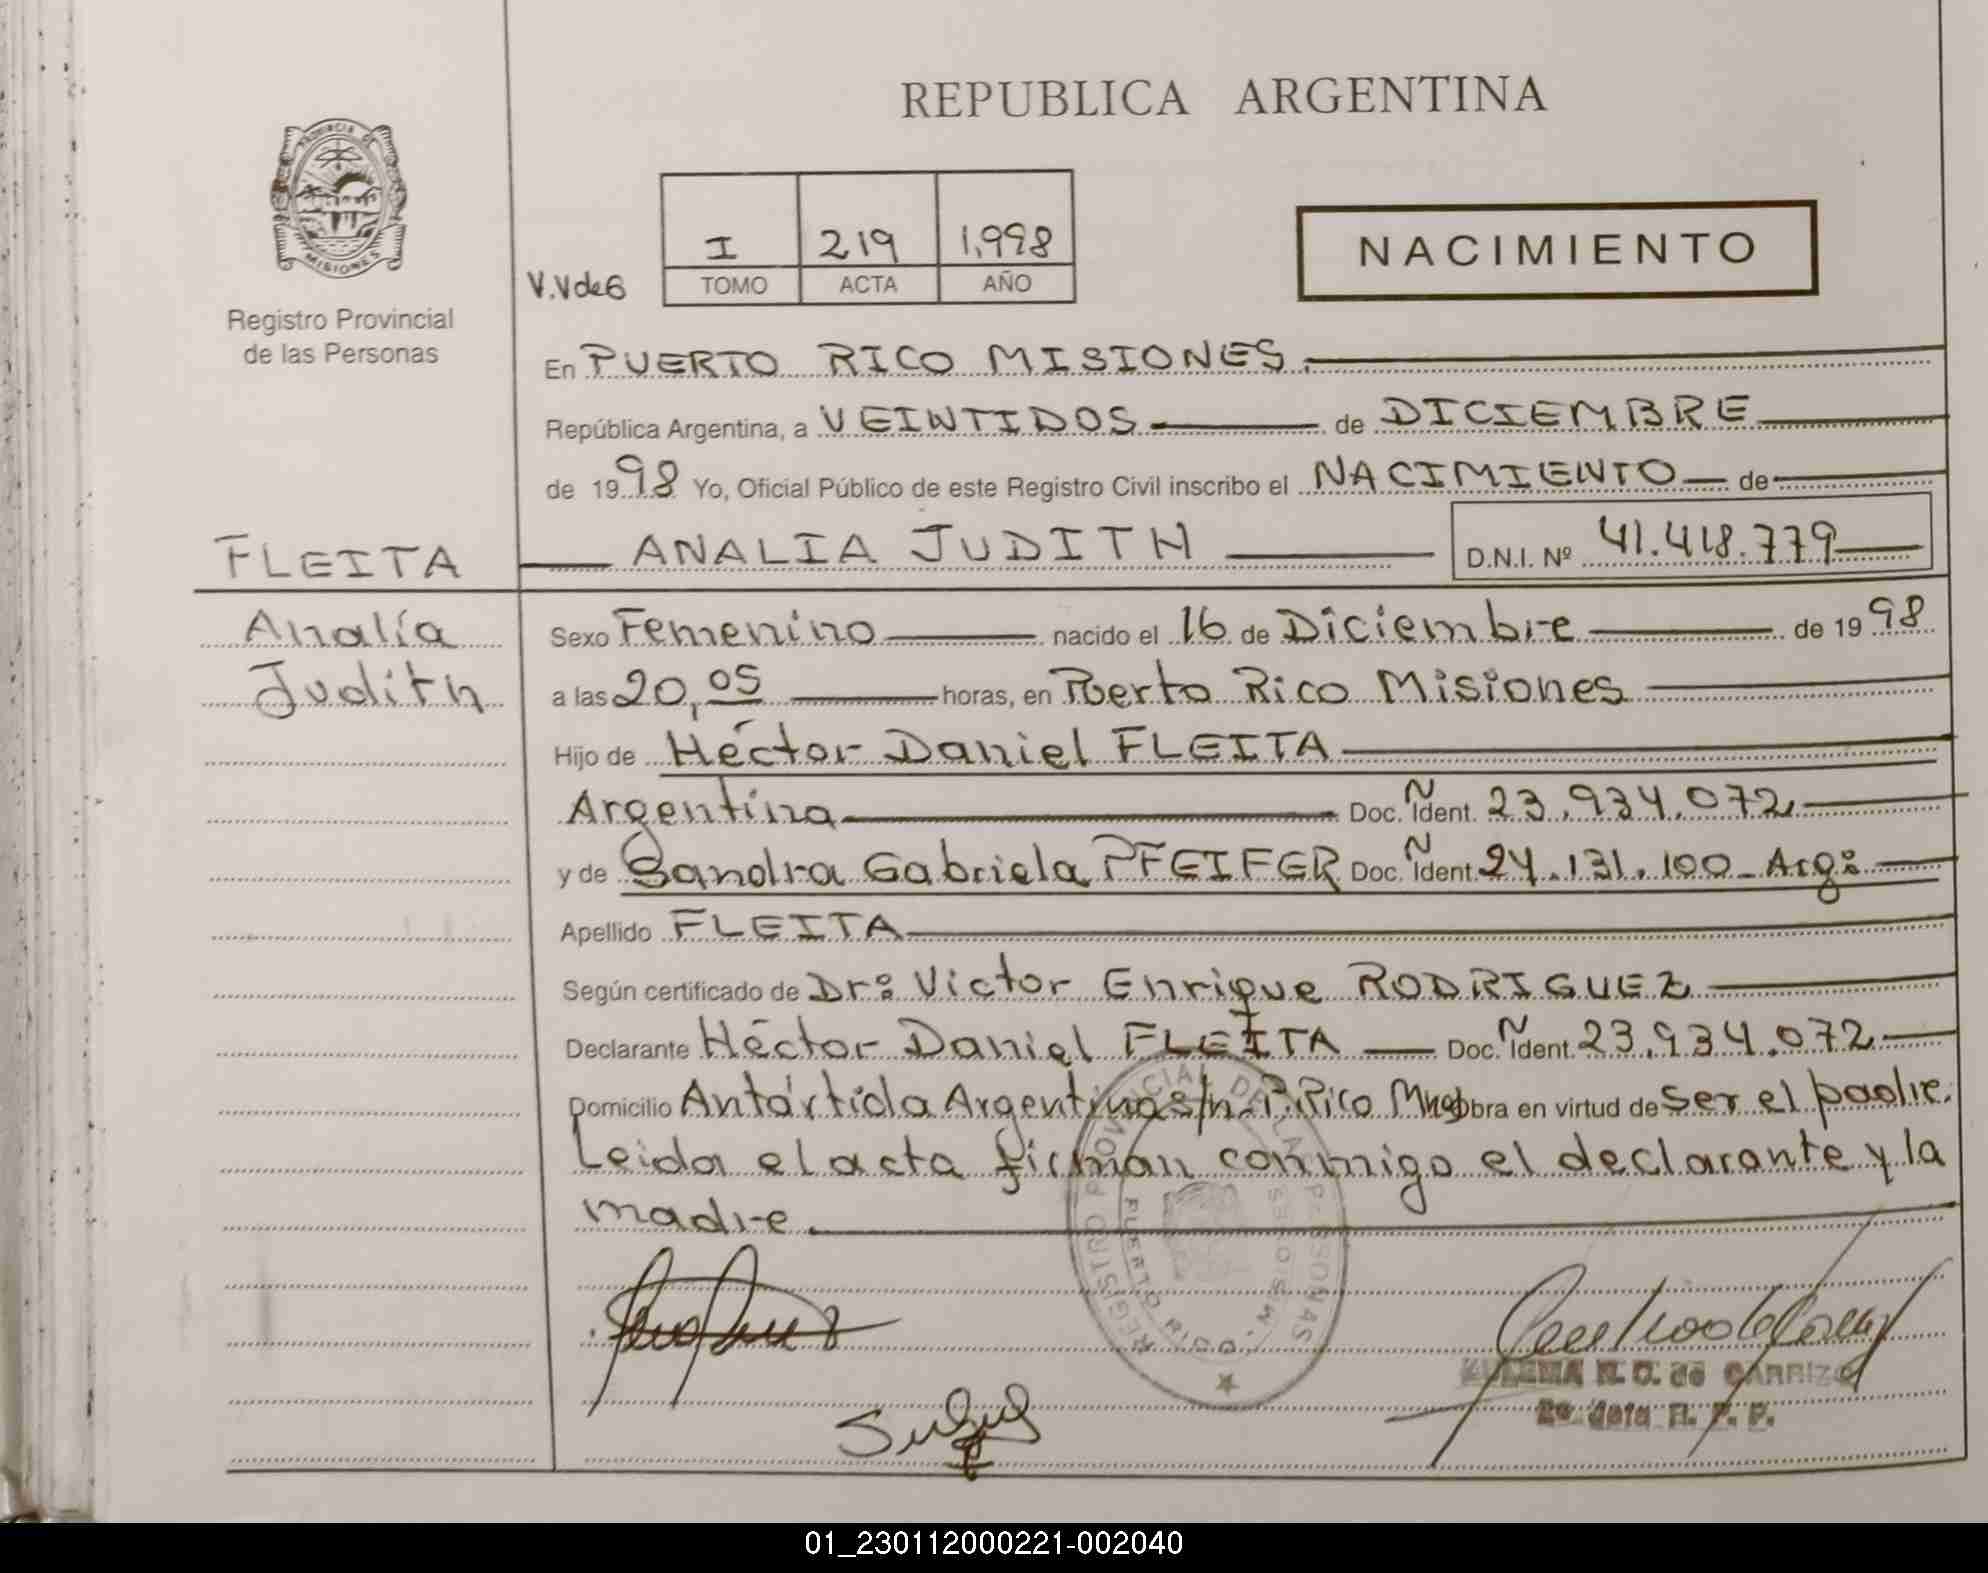 REPUBLICA ARGENTINA
PROVINCIA DE
MISIONES
Registro Provincial
de las Personas
V.Vde6
I 219 1,998
TOMO ACTA AÑO
NACIMIENTO
En PUERTO RICO MISIONES.
República Argentina, a VEINTIDOS de DICIEMBRE
de 1998 Yo, Oficial Público de este Registro Civil inscribo el NACIMIENTO de
FLEITA ANALIA JUDITH D.N.I. Nº 41.418.779
Analía
Judith
Sexo Femenino nacido el 16 de Diciembre de 1998
a las 20,05 horas, en Puerto Rico Misiones
Hijo de Héctor Daniel FLEITA
Argentina Doc. Ñ Ident. 23.934.072
y de Sandra Gabriela PFEIFER Doc. Ñ Ident. 24.131.100 - Arg:
Apellido FLEITA
Según certificado de Dr: Victor Enrique RODRIGUEZ
Declarante Héctor Daniel FLEITA Doc. Ñ Ident. 23.934.072
Domicilio Antártida Argentina s/n. P.Rico Mnes obra en virtud de ser el padre.
Leida el acta firman conmigo el declarante y la
madre.
REGISTRO PROVINCIAL DE LAS PERSONAS
PUERTO RICO
N. O. de CARRIZO
01_230112000221-002040